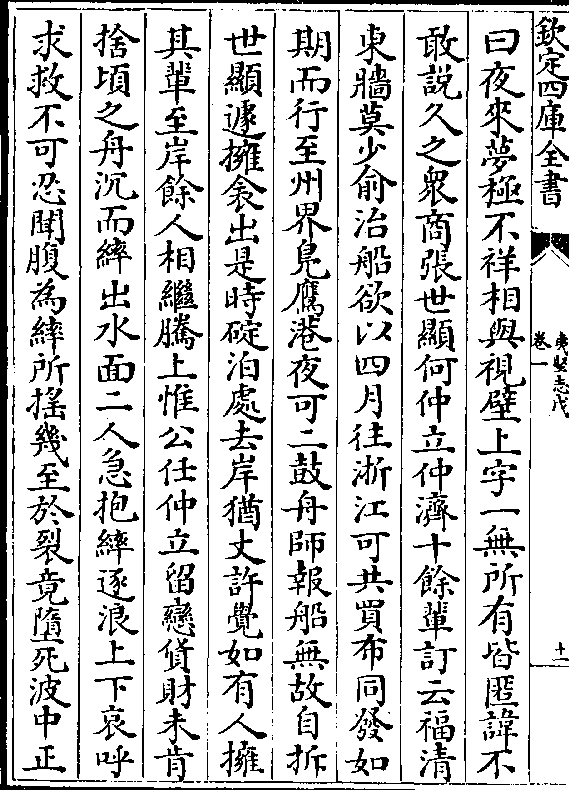 欽定四庫全書
夷堅志戊
卷一
十一
曰夜來夢極不祥相與視壁上字一無所有皆匿諱不
敢說久之衆商張世顯何仲立仲濟十餘輩訂云福清
東牆莫少俞治船欲以四月往浙江可共買布同發如
期而行至州界鳧鷹港夜可二鼓舟師報船無故自拆
世顯遽擁衾出是時碇泊處去岸猶丈許覺如有人擁
其輩至岸餘人相繼騰上惟公任仲立留戀貨財未肯
捨頃之舟沉而縴出水面二人急抱縴逐浪上下哀呼
求救不可忍聞腹為縴所搖幾至於裂竟墮死波中正